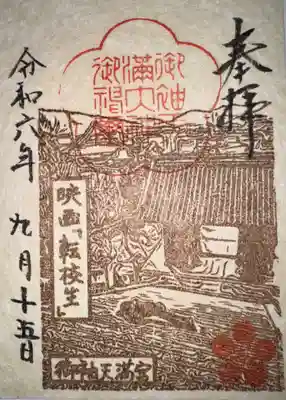 奉拝
御袖天満宮
映画「転校生」
御袖天満宮
令和六年 九月十五日